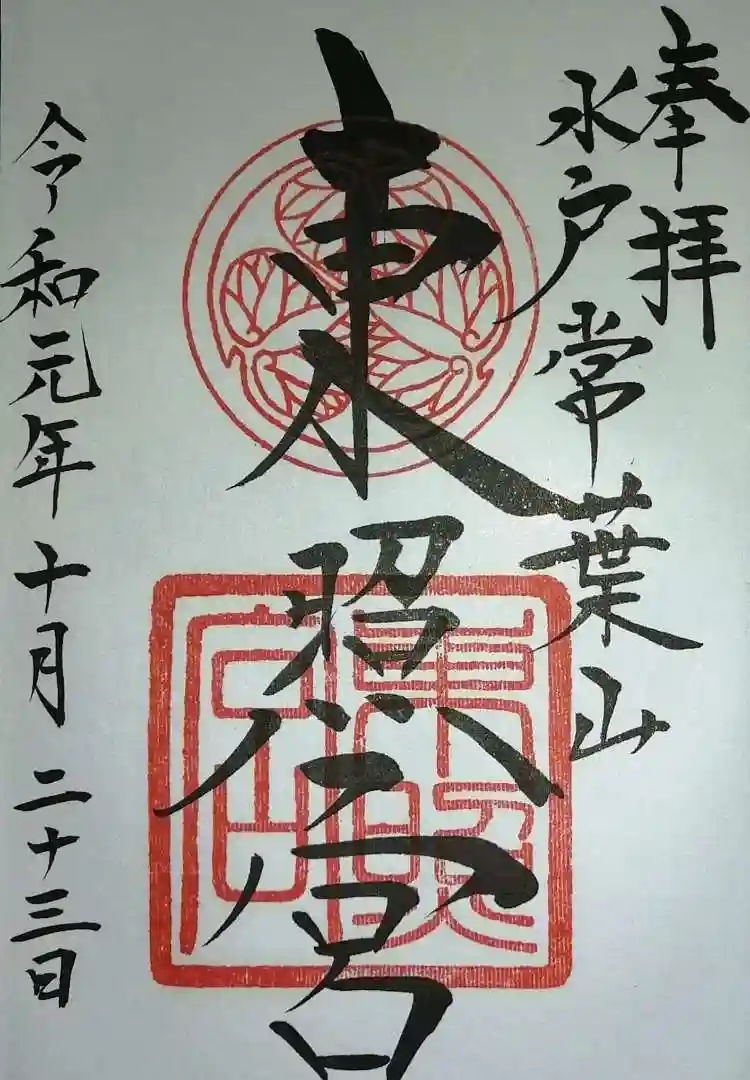 奉拝
水戸常葉山
東照宮
令和元年十月二十三日
東照宮印